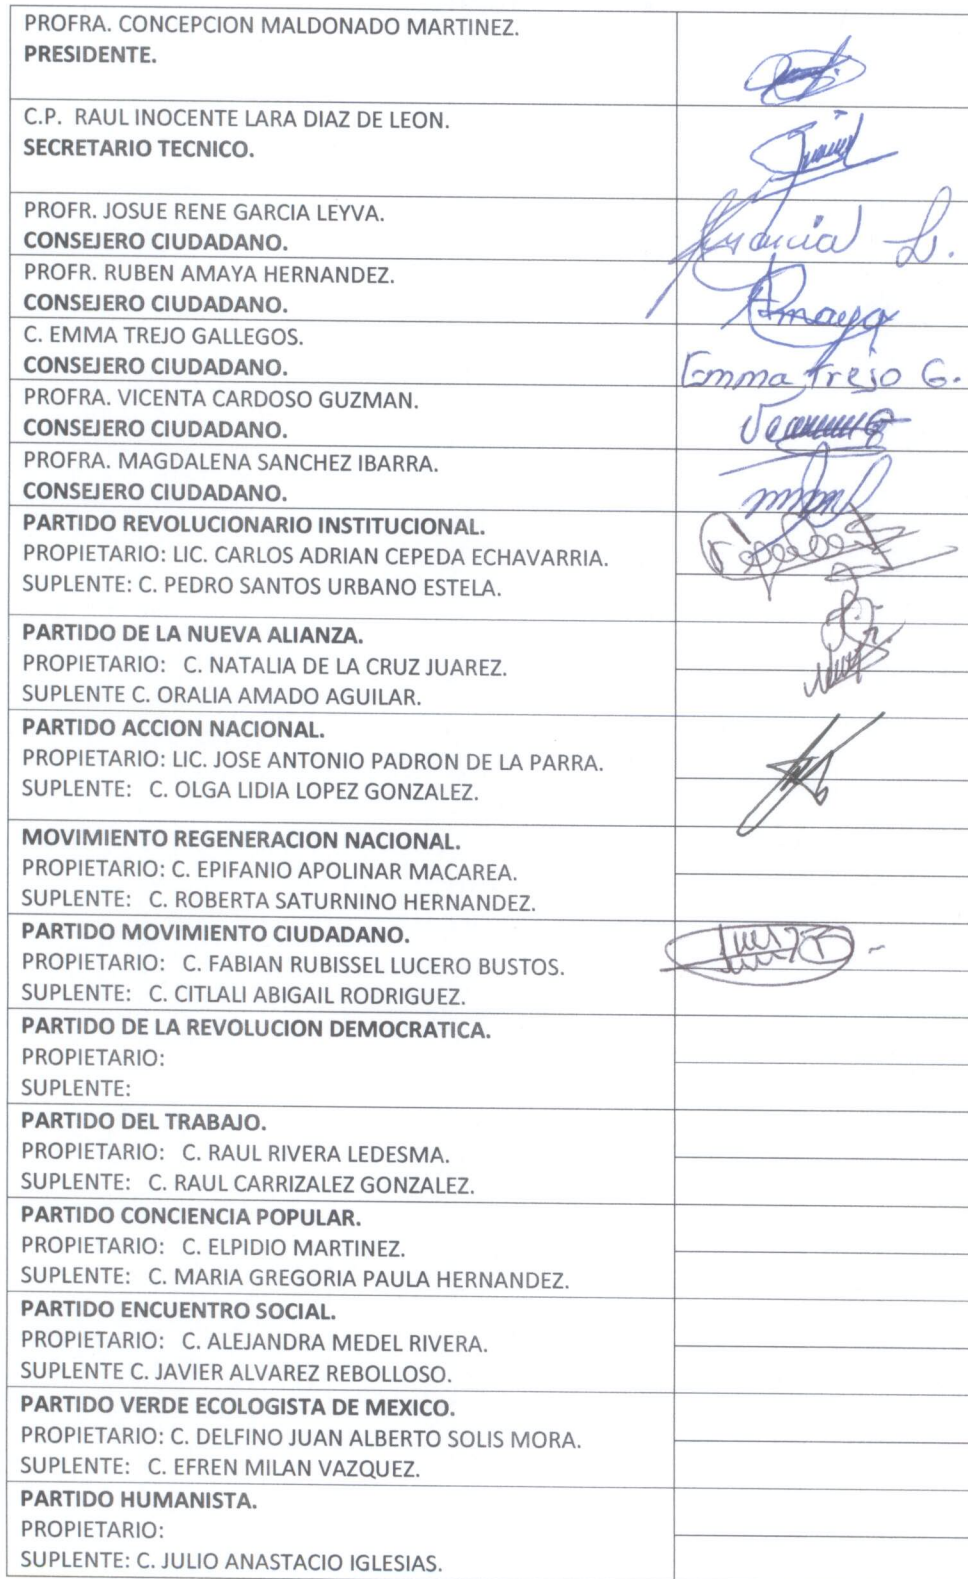 PROFRA. CONCEPCION MALDONADO MARTINEZ.
PRESIDENTE.
C.P. RAUL INOCENTE LARA DIAZ DE LEON.
SECRETARIO TECNICO.
PROFR. JOSUE RENE GARCIA LEYVA.
CONSEJERO CIUDADANO.
PROFR. RUBEN AMAYA HERNANDEZ.
CONSEJERO CIUDADANO.
Amaya
C. EMMA TREJO GALLEGOS.
CONSEJERO CIUDADANO.
Emma Trejo G.
PROFRA. VICENTA CARDOSO GUZMAN.
CONSEJERO CIUDADANO.
PROFRA. MAGDALENA SANCHEZ IBARRA.
CONSEJERO CIUDADANO.
PARTIDO REVOLUCIONARIO INSTITUCIONAL.
PROPIETARIO: LIC. CARLOS ADRIAN CEPEDA ECHAVARRIA.
SUPLENTE: C. PEDRO SANTOS URBANO ESTELA.
PARTIDO DE LA NUEVA ALIANZA.
PROPIETARIO: C. NATALIA DE LA CRUZ JUAREZ.
SUPLENTE C. ORALIA AMADO AGUILAR.
PARTIDO ACCION NACIONAL.
PROPIETARIO: LIC. JOSE ANTONIO PADRON DE LA PARRA.
SUPLENTE: C. OLGA LIDIA LOPEZ GONZALEZ.
MOVIMIENTO REGENERACION NACIONAL.
PROPIETARIO: C. EPIFANIO APOLINAR MACAREA.
SUPLENTE: C. ROBERTA SATURNINO HERNANDEZ.
PARTIDO MOVIMIENTO CIUDADANO.
PROPIETARIO: C. FABIAN RUBISSEL LUCERO BUSTOS.
SUPLENTE: C. CITLALI ABIGAIL RODRIGUEZ.
PARTIDO DE LA REVOLUCION DEMOCRATICA.
PROPIETARIO:
SUPLENTE:
PARTIDO DEL TRABAJO.
PROPIETARIO: C. RAUL RIVERA LEDESMA.
SUPLENTE: C. RAUL CARRIZALEZ GONZALEZ.
PARTIDO CONCIENCIA POPULAR.
PROPIETARIO: C. ELPIDIO MARTINEZ.
SUPLENTE: C. MARIA GREGORIA PAULA HERNANDEZ.
PARTIDO ENCUENTRO SOCIAL.
PROPIETARIO: C. ALEJANDRA MEDEL RIVERA.
SUPLENTE C. JAVIER ALVAREZ REBOLLOSO.
PARTIDO VERDE ECOLOGISTA DE MEXICO.
PROPIETARIO: C. DELFINO JUAN ALBERTO SOLIS MORA.
SUPLENTE: C. EFREN MILAN VAZQUEZ.
PARTIDO HUMANISTA.
PROPIETARIO:
SUPLENTE: C. JULIO ANASTACIO IGLESIAS.